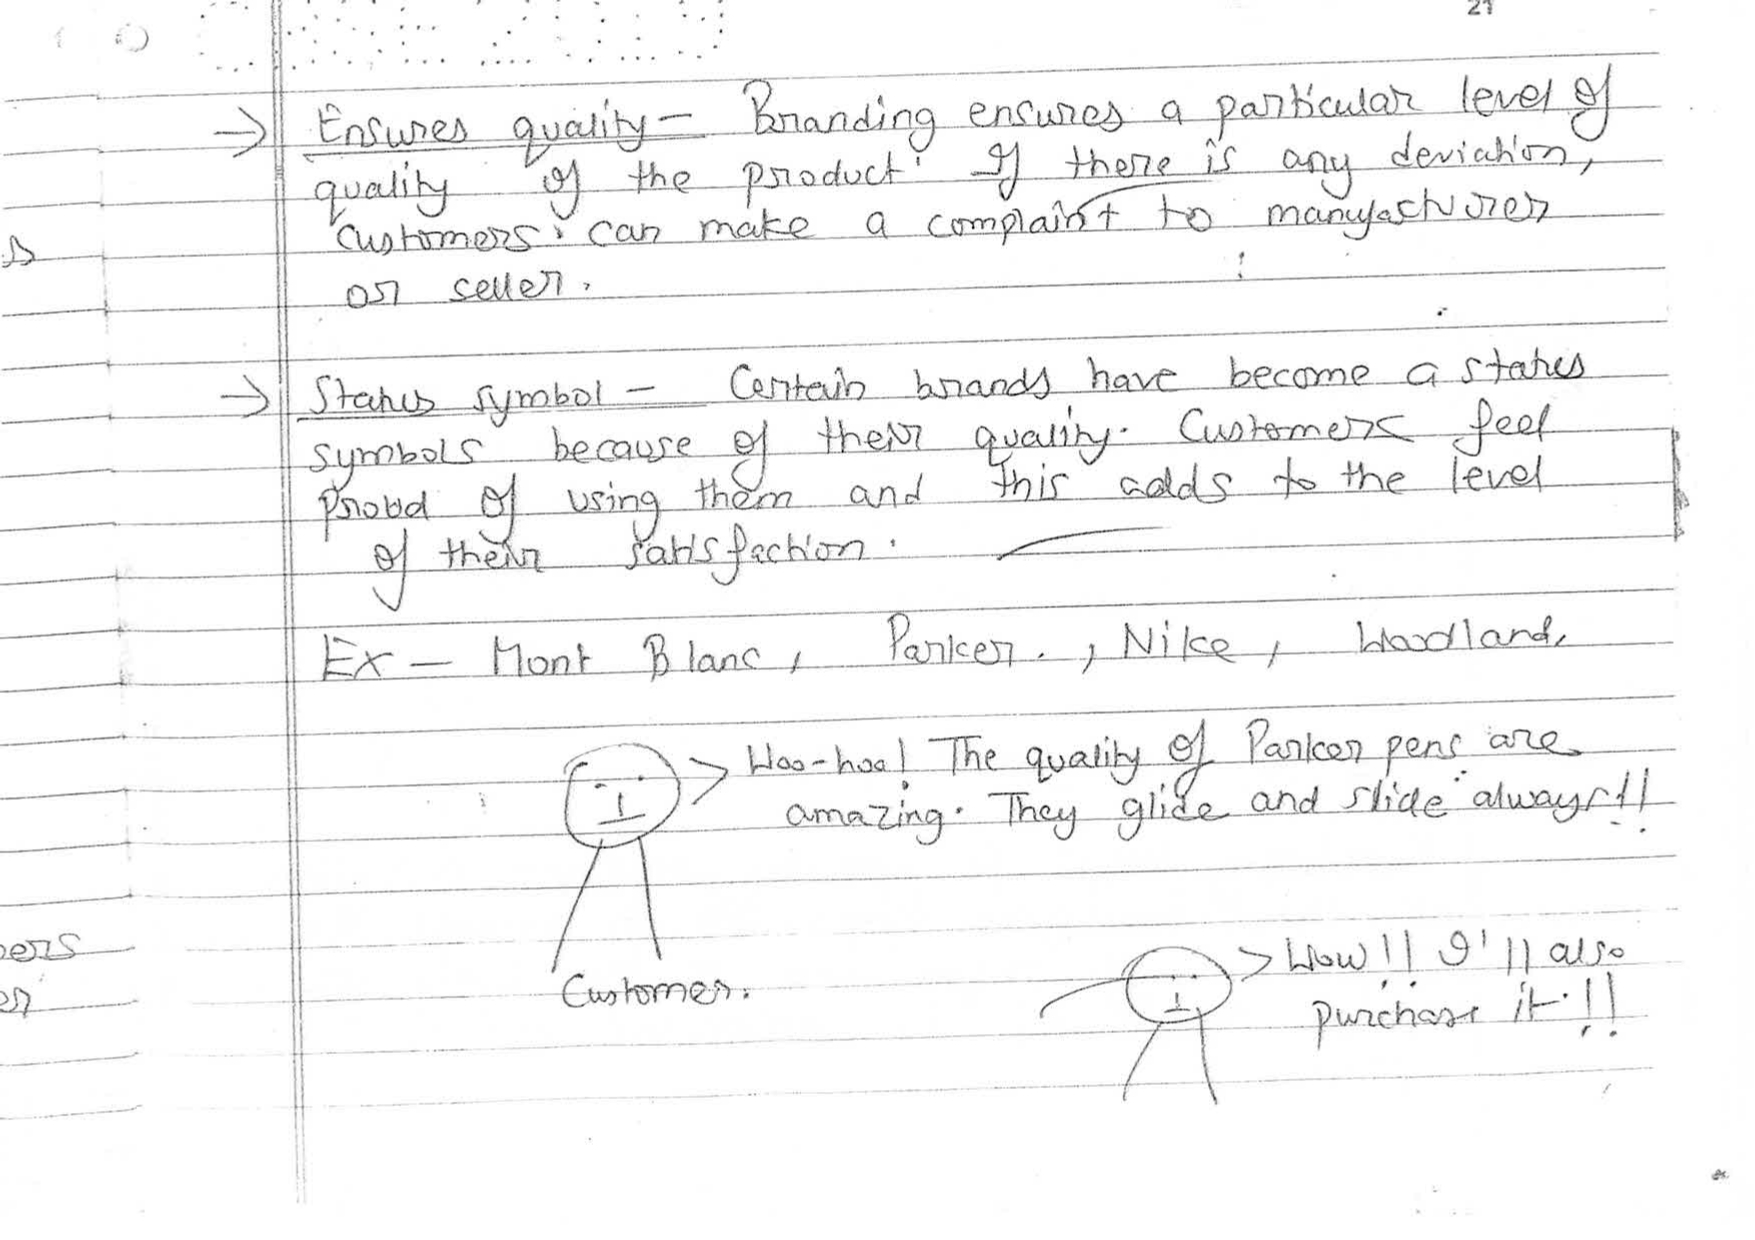 21
→ Ensures quality - Branding ensures a particular level of
quality of the product. If there is any deviation,
customers can make a complaint to manufacturer
or seller.
→ Status symbol - Certain brands have become a status
symbols because of their quality. Customers feel
proud of using them and this adds to the level
of their satisfaction.
Ex - Mont Blanc, Parker., Nike, Woodland.
> Woo-hoo! The quality of Parker pens are
amazing. They glide and slide always!!
Customer.
> Wow!! I'll also
purchase it.!!